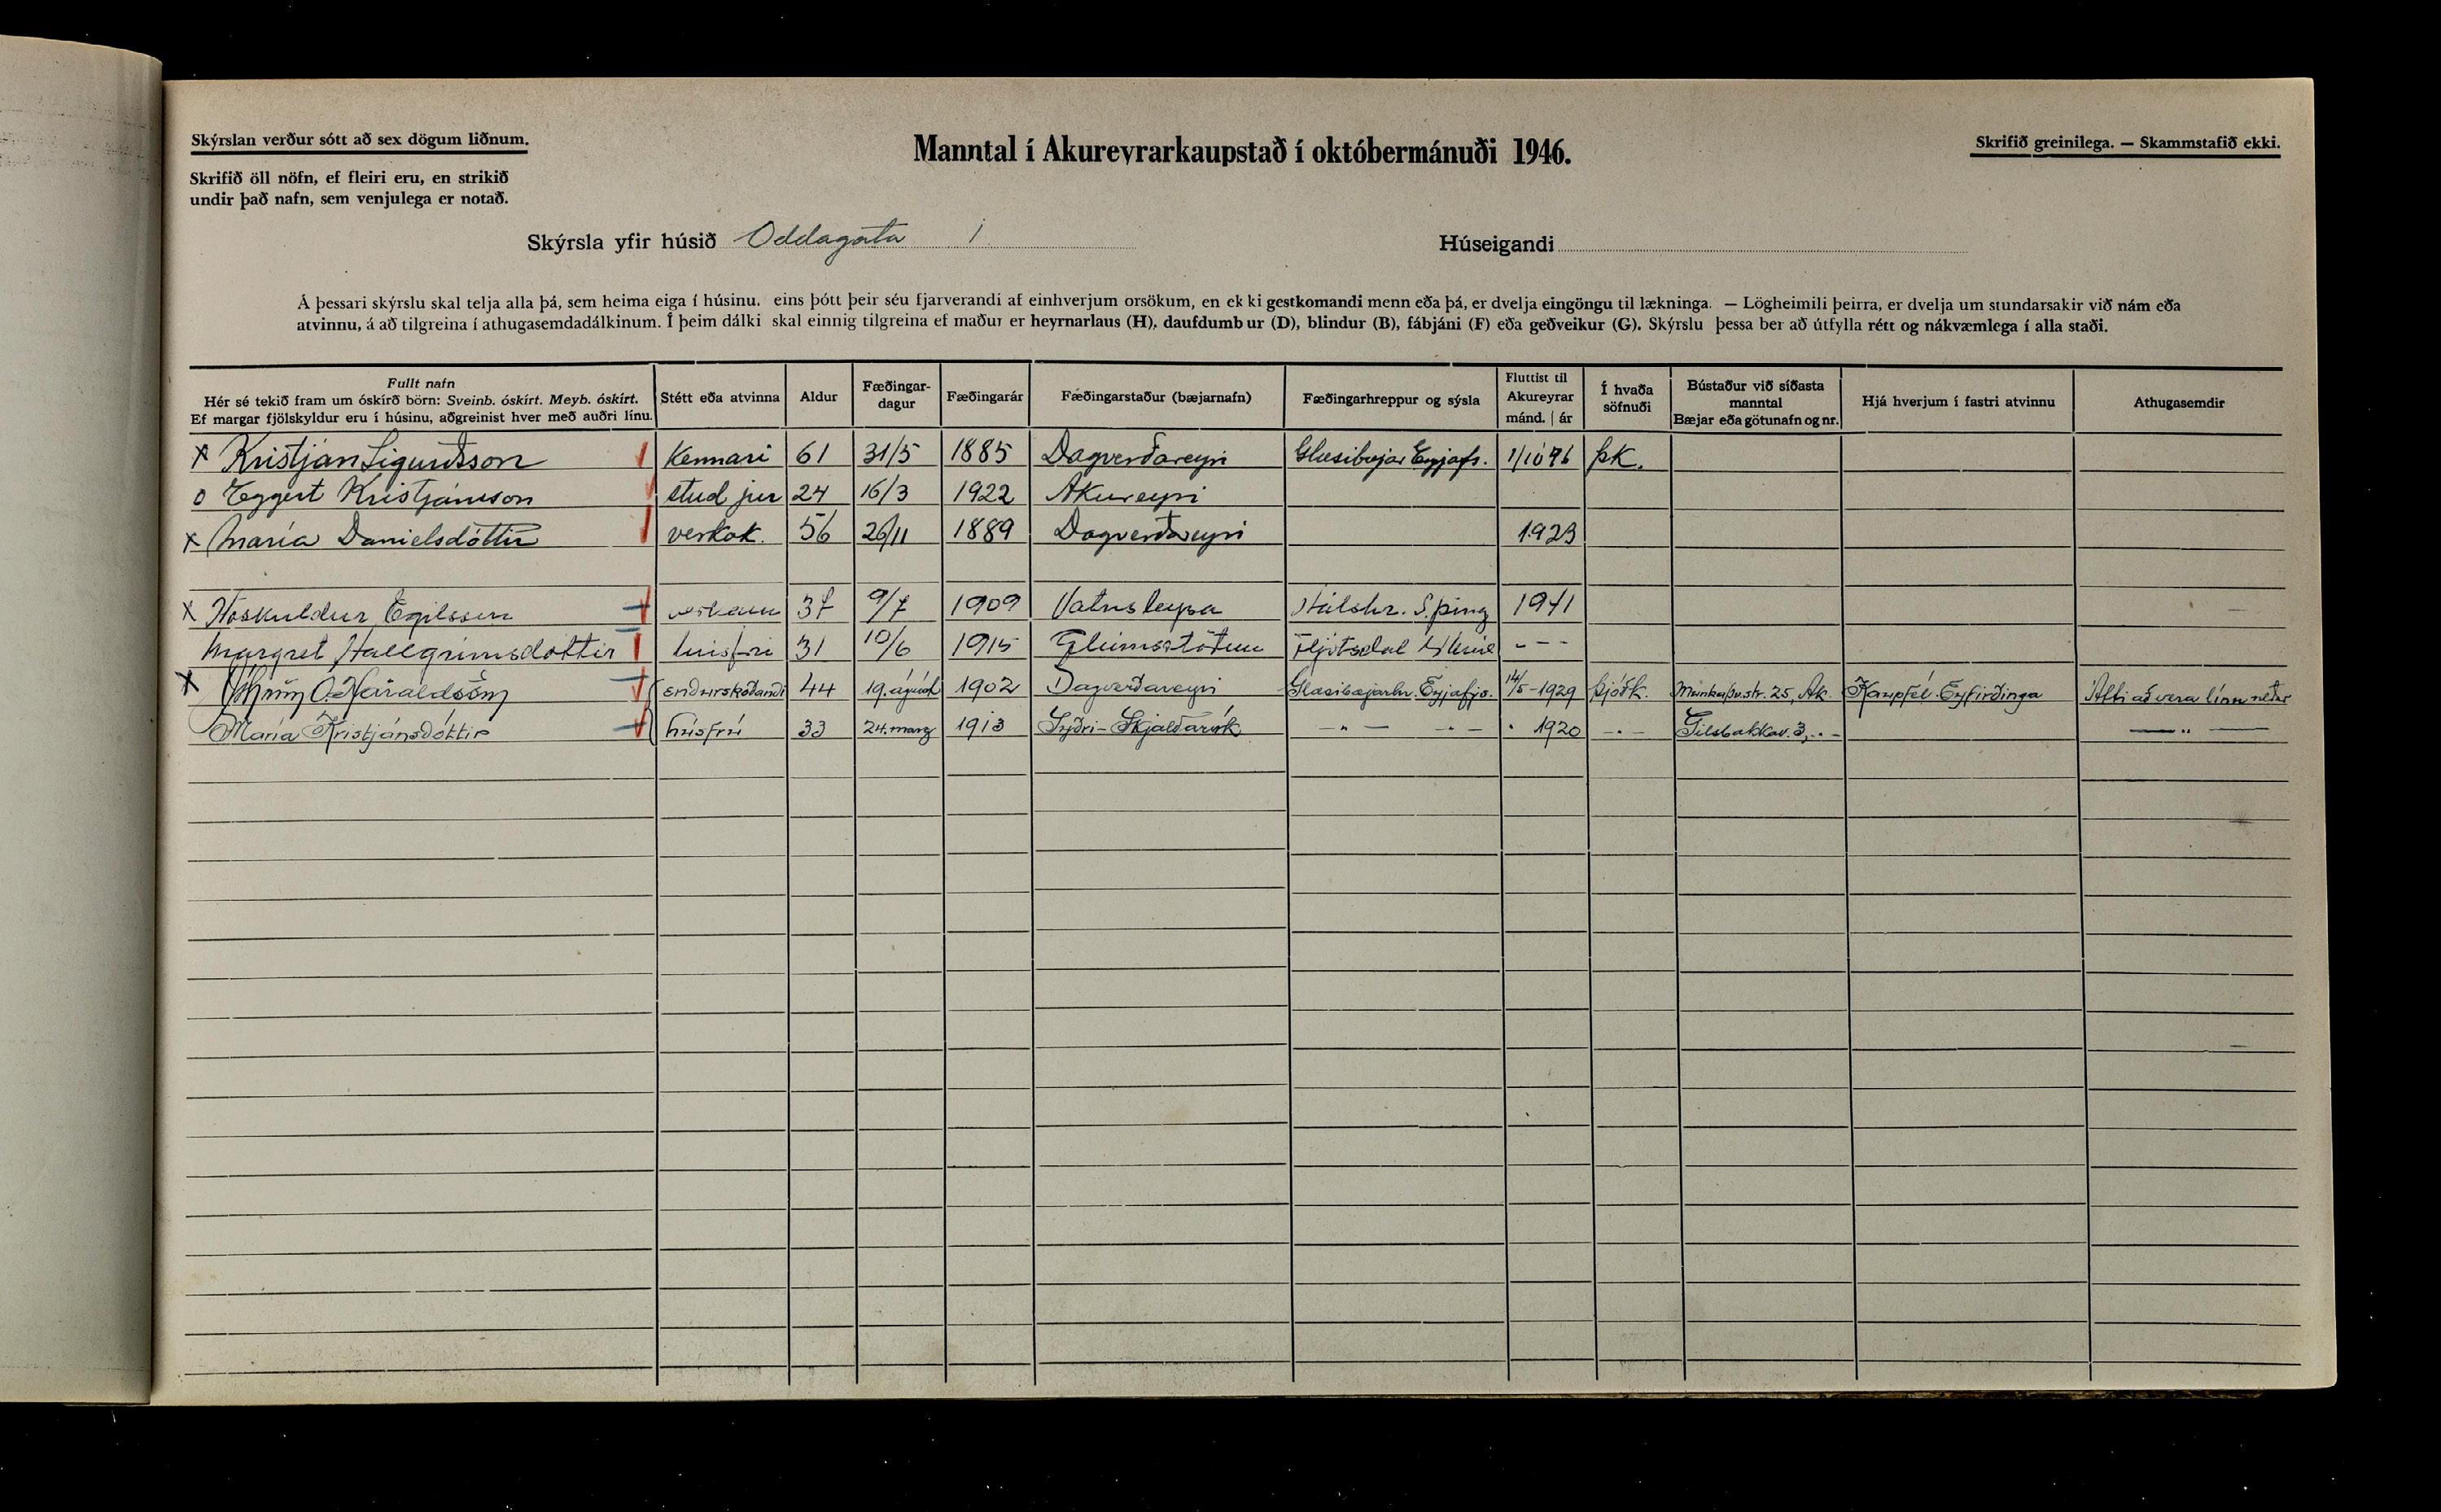 Skýrslan verður sótt að sex dögum liðnum.
Skrifið öll nöfn, ef fleiri eru, en strikið
undir það nafn, sem venjulega er notað.
Manntal í Akureyrarkaupstað í októbermánuði 1946.
Skrifið greinilega. — Skammstafið ekki.
Skýrsla yfir húsið Oddagata 1
Húseigandi
Á þessari skýrslu skal telja alla þá, sem heima eiga í húsinu, eins þótt þeir séu fjarverandi af einhverjum orsökum, en ek ki gestkomandi menn eða þá, er dvelja eingöngu til lækninga. — Lögheimili þeirra, er dvelja um stundarsakir við nám eða
atvinnu, á að tilgreina í athugasemdadálkinum. Í þeim dálki skal einnig tilgreina ef maður er heyrnarlaus (H), daufdumb ur (D), blindur (B), fábjáni (F) eða geðveikur (G). Skýrslu þessa ber að útfylla rétt og nákvæmlega í alla staði.
Fullt nafn
Hér sé tekið fram um óskírð börn: Sveinb. óskírt. Meyb. óskírt.
Ef margar fjölskyldur eru í húsinu, aðgreinist hver með auðri línu.
Stétt eða atvinna
Aldur
Fæðingar-
dagur
Fæðingarár
Fæðingarstaður (bæjarnafn)
Fæðingarhreppur og sýsla
Fluttist til
Akureyrar
mánd. | ár
Í hvaða
söfnuði
Bústaður við síðasta
manntal
Bæjar eða götunafn og nr.
Hjá hverjum í fastri atvinnu
Athugasemdir
x Kristján Sigurðsson kennari 61 31/5 1885 Dagverðareyri Glæsibæjar Eyjafs. 1/10 Þk.
o Eggert Kristjánsson stud jur 24 16/3 1922 Akureyri
x María Danielsdóttir verkak. 56 26/11 1889 Dagverðareyri 1923
x Höskuldur Egilsson 37 9/7 1909 Vatnsleysu Hálshr. S. þing 1941
Margret Hallgrimsdottir húsfrú 31 10/6 1915 Glúmsstöðum Fljótsdal - - -
x O. Haraldsson endurskoðandi 44 19. ágúst 1902 Dagverðareyri Glæsibæjarhr. Eyjafjs. 14/5 - 1929 Þjóðk. Munkaþv.str. 25, Ak. Kaupfél. Eyfirðinga Átti að vera línu neðar
María Kristjánsdóttir húsfrú 33 24. marz 1913 Syðri-Skjaldarvík — " — - " - 1920 - " - Gilsbakkav. 3, - " - — " —